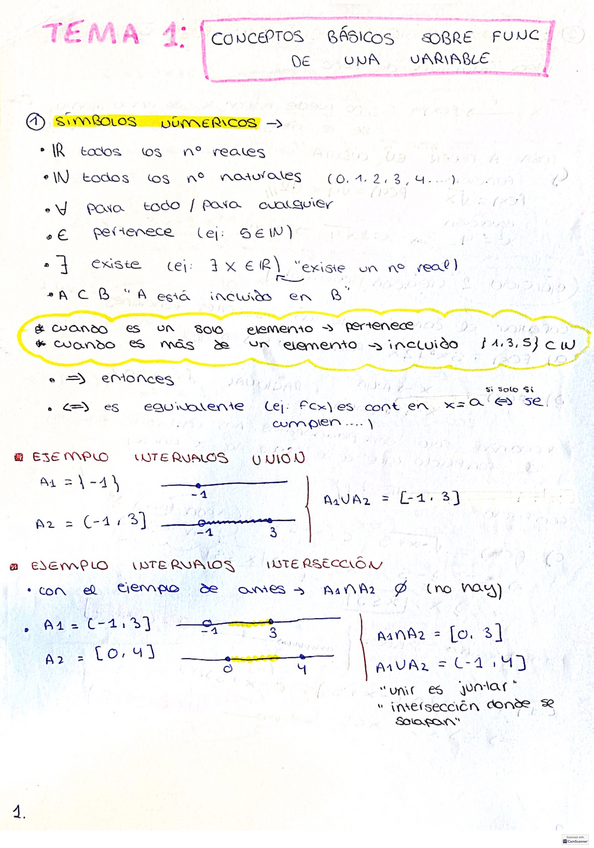 TEMA 1:
CONCEPTOS BÁSICOS SOBRE FUNC
DE UNA VARIABLE
① SÍMBOLOS NÚMERICOS →
• IR todos los nº reales
• IN todos los nº naturales (0, 1, 2, 3, 4 ....)
• ∀ para todo / para cualquier
• ∈ pertenece (ej: 5 ∈ IN)
• ∃ existe (ej: ∃ x ∈ IR) "existe un nº real)
• A ⊂ B "A está incluido en B"
* cuando es un solo elemento → pertenece
* cuando es más de un elemento → incluido {1, 3, 5} ⊂ IN
• ⇒ entonces
si solo si
• ⇔ es equivalente (ej: f(x) es cont en x = a ⇔ se
cumplen ....)
EJEMPLO INTERVALOS UNIÓN
A1 = {-1}
-1
A2 = (-1, 3]
-1 3
A1∪A2 = [-1, 3]
EJEMPLO INTERVALOS INTERSECCIÓN
• con el ejemplo de antes → A1∩A2 ∅ (no hay)
• A1 = (-1, 3]
-1 3
A2 = [0, 4]
0 4
A1∩A2 = [0, 3]
A1∪A2 = (-1, 4]
"unir es juntar"
"intersección donde se
solapan"
1.
CamScanner